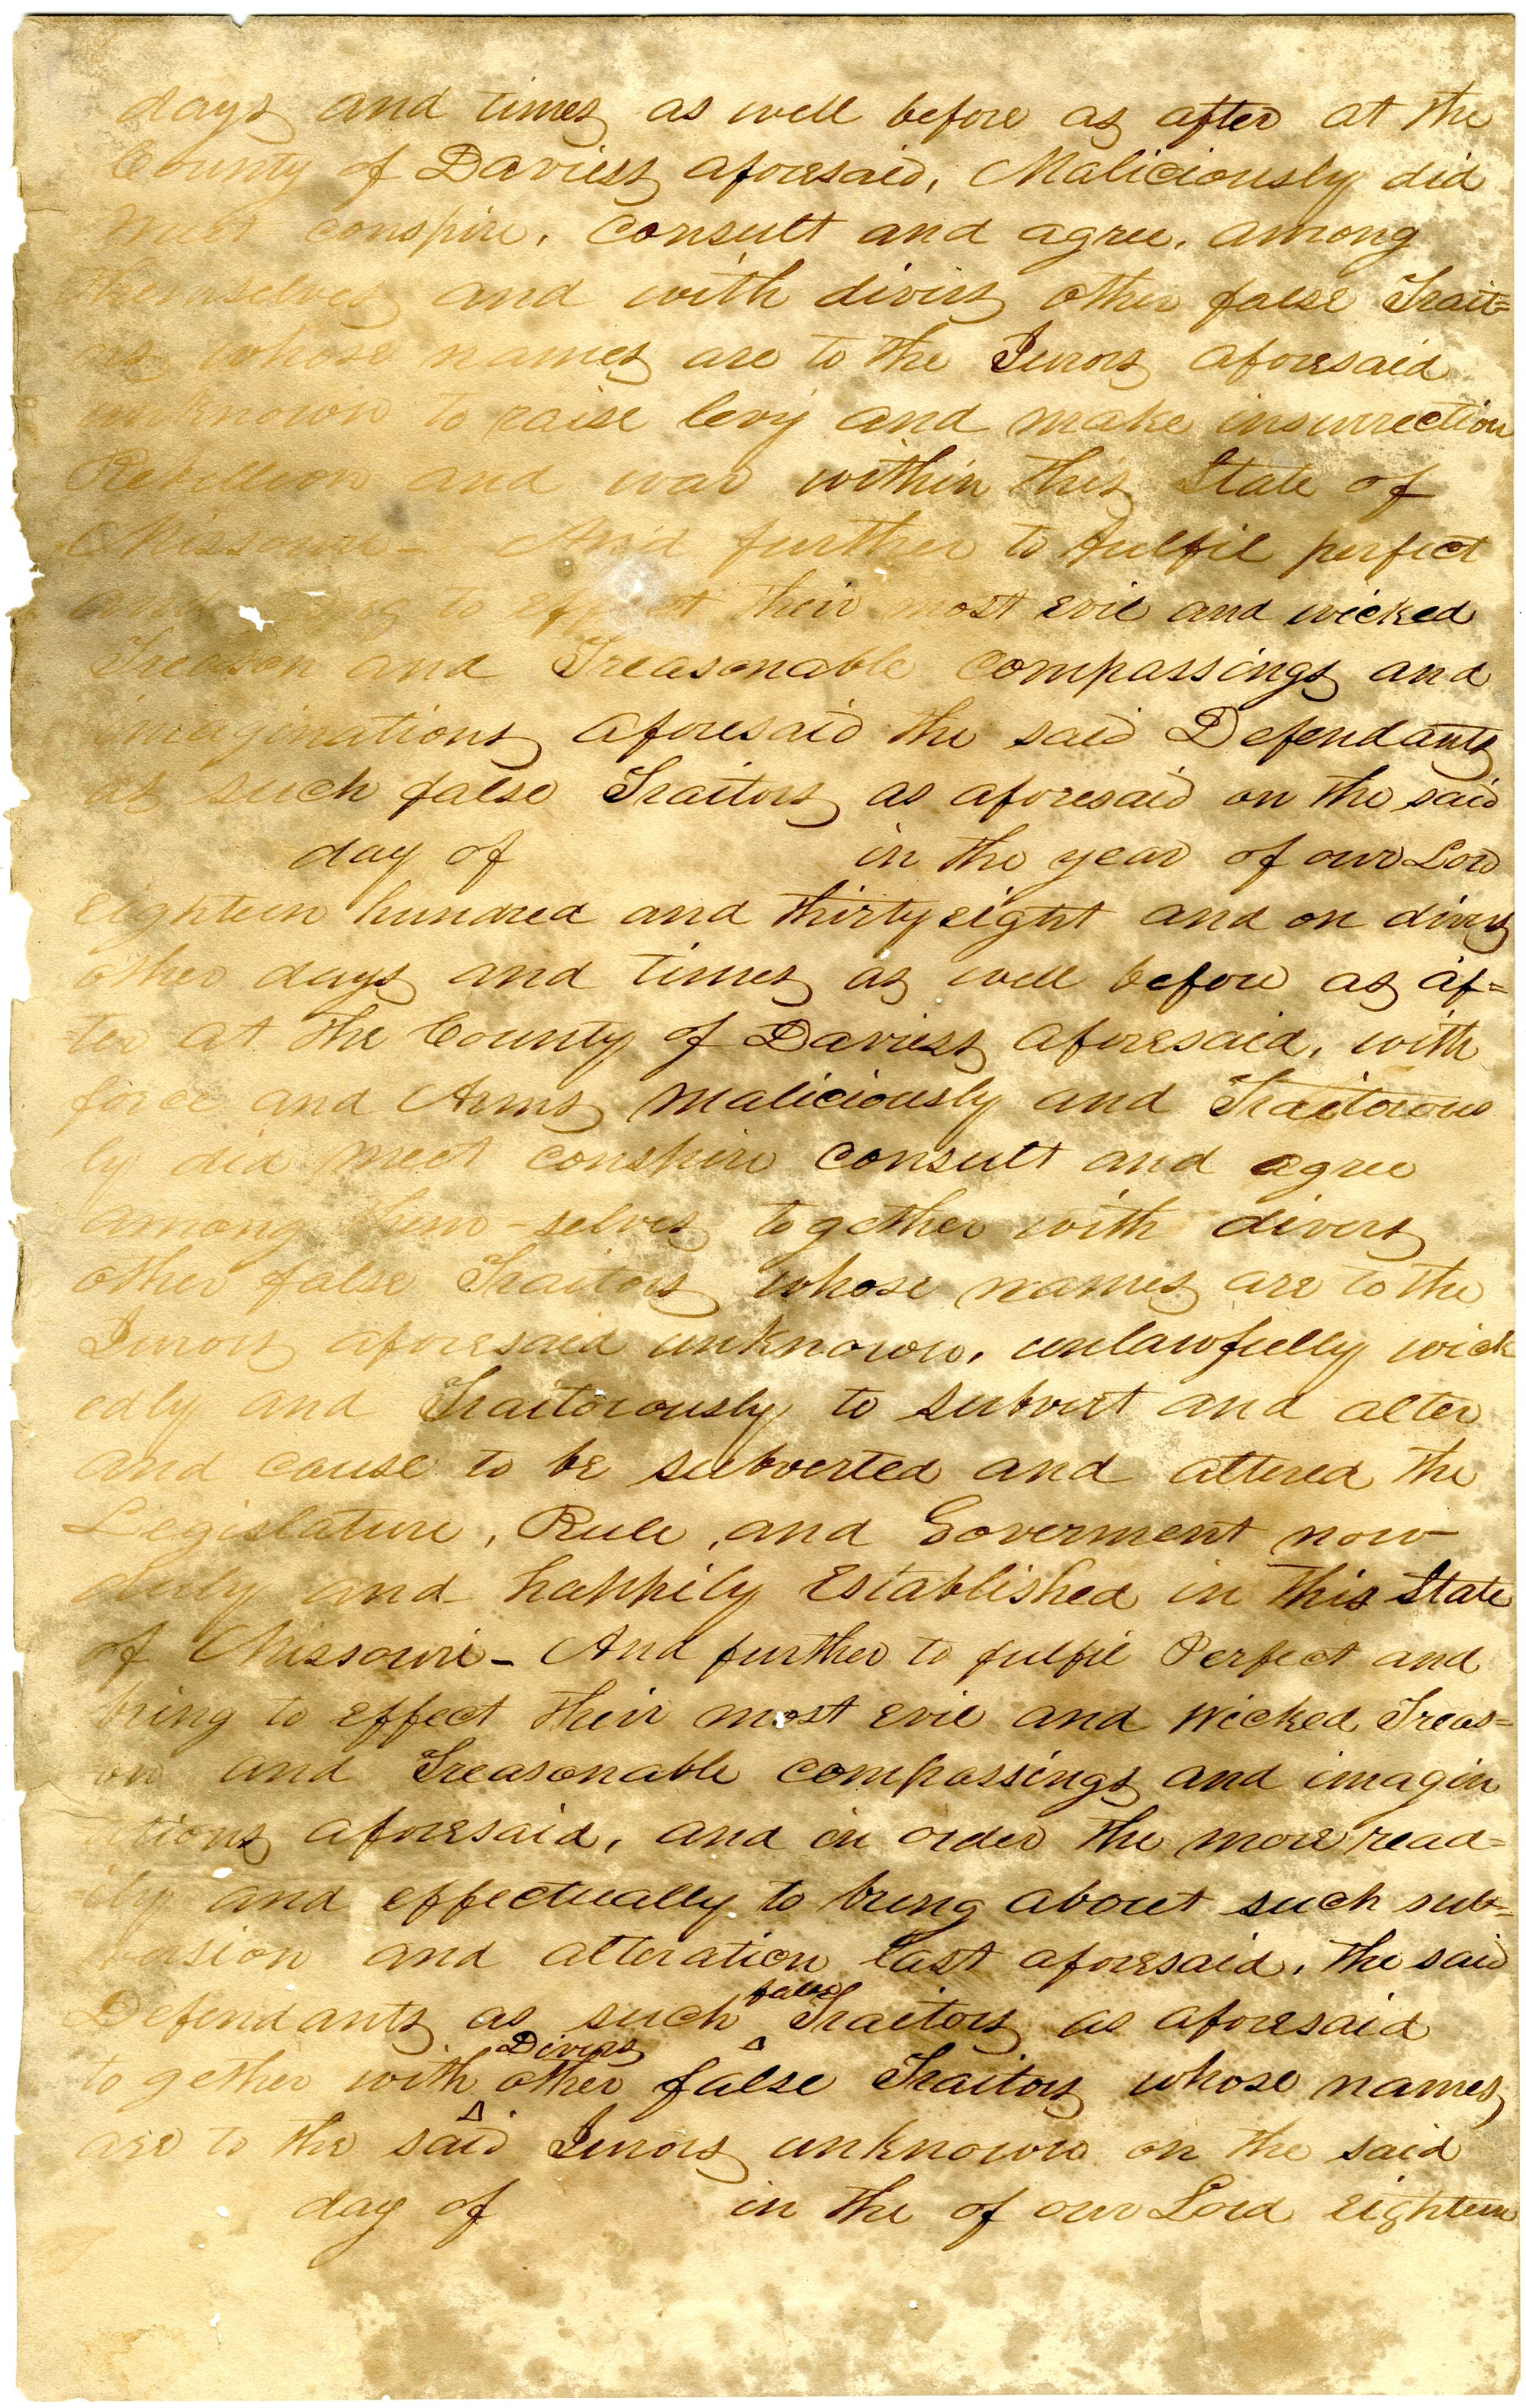 days and times as well before as after at the
County of Daviess aforesaid, Maliciously did
meet conspire, consult and agree, among
themselves and with divers other false Trait=
ors whose names are to the Jurors aforesaid
unknown to raise levy and make insurrection
Rebellion and war within this State of
Missouri - And further to fulfil perfect
and to effect their most evil and wicked
Treason and Treasonable compassings and
imaginations aforesaid the said Defendants
as such false Traitors as aforesaid on the said
day of in the year of our Lord
eighteen hundred and thirty eight and on divers
other days and times as well before as af=
ter at the County of Daviess aforesaid, with
force and Arms maliciously and Traitorous
ly did meet conspire consult and agree
among them-selves together with divers
other false Traitors whose names are to the
Jurors aforesaid unknown, unlawfully wick
edly and Traitorously to subvert and alter
and cause to be subverted and altered the
Legislature, Rule, and Goverment now
duly and happily Established in this State
of Missouri - And further to fulfil Perfect and
bring to effect their most evil and wicked Treas=
on and Treasonable compassings and imagin
ations aforesaid, and in order the more read=
ily and effectually to bring about such sub=
version and alteration last aforesaid, the said
Defendants as such false Traitors as aforesaid
together with Divers other false Traitors whose names
are to the said Jurors unknown on the said
day of in the of our Lord eighteen